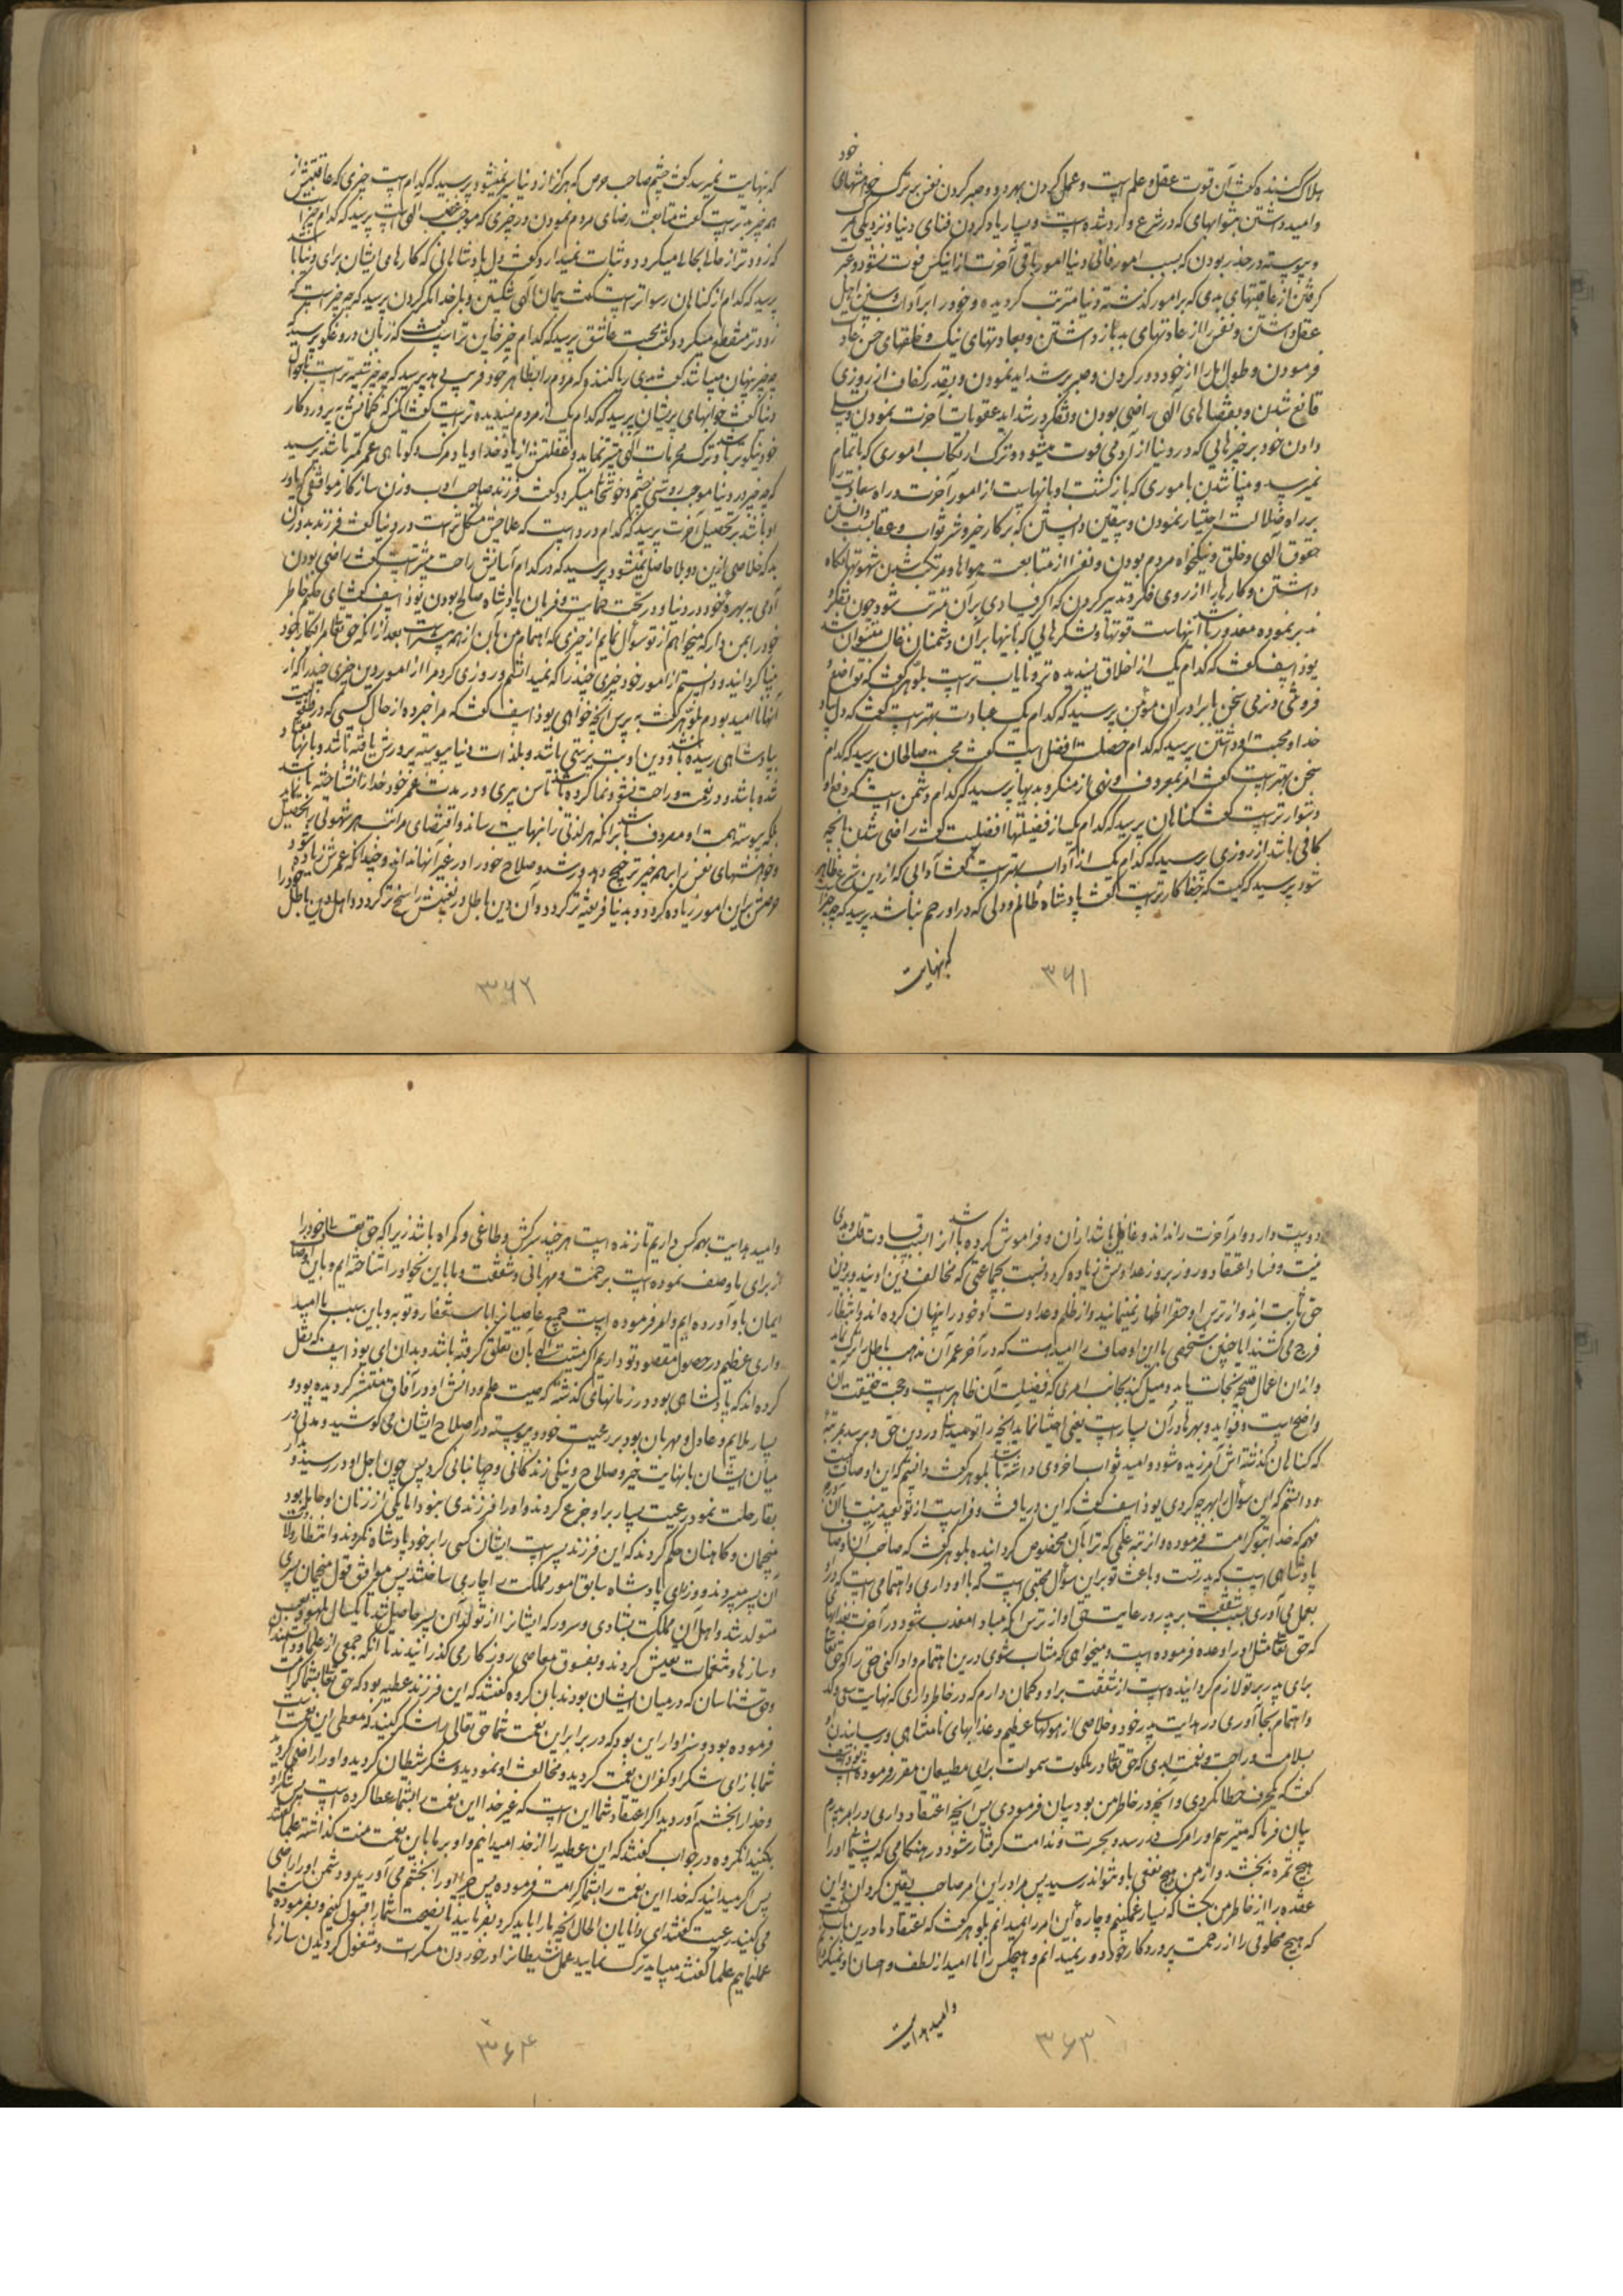 خود
هلاک کننده گفت آن قوت عقل و علم است و عمل کردن بهر دو و صبر کردن نفس بر ترک خواهشهای
و امید داشتن بثوابهایی که در شرع وارد شده است و بسیار یاد کردن فنای دنیا و نزدیکی مرگ
و پیوسته در حذر بودن که بسبب امور فانی دنیا امور باقی آخرت از این کس فوت نشود و عبرت
گرفتن از عاقبتهای بدی که بر امور گذشته دنیا مترتب گردیده و خود را بر آداب و سنن اهل
عقل داشتن و نفس را از عادتهای بد باز داشتن و بعادتهای نیک و خلقهای حسن عادت
فرمودن و طول امل را از خود دور کردن و صبر بر شداید نمودن و بقدر کفاف از روزی
قانع شدن و بقضاهای الهی راضی بودن و تفکر در شداید عقوبات آخرت نمودن و تسلی
دادن خود بر چیزهایی که در دنیا از آدمی فوت میشود و ترک ارتکاب اموری که باتمام
نمیرسد و بینا شدن باموری که بازگشت او بآنهاست از امور آخرت و راه سعادت را
بر راه ضلالت اختیار نمودن و یقین دانستن که بر کار خیر و شر ثواب و عقاب هست و دانستن
حقوق الهی و خلق و نیکخواه مردم بودن و نفس را از متابعت هواها و مرتکب شدن شهوتها نگاه
داشتن و کارها را از روی فکر و تدبیر کردن که اگر فسادی بر آن مترتب شود چون تفکر و
تدبر نموده معذور باشد اینهاست قوتها و لشکرهایی که بآنها بر آن دشمنان غالب میتوان شد
یوذاسف گفت که کدام یک از اخلاق پسندیده تر و نایاب تر است بلوهر گفت که تواضع و
فروتنی و نرمی سخن با برادران مؤمن پرسید که کدام یک عبادت بهتر است گفت که دل بیاد
خدا و محبت او داشتن پرسید که کدام خصلت افضل است گفت محبت صالحان پرسید که کدام
سخن بهتر است گفت امر بمعروف و نهی از منکر و بدیها پرسید که کدام دشمن است که دفع او
دشوارتر است گفت گناهان پرسید که کدام یک از فضیلتها افضلیت گفت راضی شدن بآنچه
کافی باشد از روزی پرسید که کدام یک از آداب بهتر است گفت آدابی که از دین شرع ظاهر
شود پرسید که کیست که جفاکارتر است گفت پادشاه ظالم و دلی که در او رحم نباشد پرسید که چه چیز است
که نهایت
۳۶۱
که نهایت نمیرسد گفت چشم صاحب حرص که هرگز از دنیا سیر نمیشود پرسید که کدام است چیزی که عاقبتش از
همه چیز بدتر است گفت متابعت رضای مردم نمودن در چیزی که موجب غضب الهی است پرسید که کدام چیز است
که زودتر از حالی بحالی میگردد و ثبات نمیدارد گفت دل پادشاهانی که کارهای ایشان برای دنیا باشد
پرسید که کدام از گناهان رسواتر است گفت پیمان الهی شکستن و با خدا مکر کردن پرسید که چه چیز است که
زودتر منقطع میگردد گفت محبت عاشق پرسید که کدام چیز خاین تر است گفت که زبان دروغگو پرسید که
چه چیز پنهان میباشد گفت بدی ریا کننده که مردم را بظاهر خود فریب دهد پرسید که چه چیز شبیه تر است باحوال
دنیا گفت خوابهای پریشان پرسید که کدام یک از مردم پسندیده تر است گفت آنکس که گمانش به پروردگار
خود نیکوتر باشد و ترک محرمات الهی بیشتر نماید و غفلتش از یاد خدا و یاد مرگ و کوتاهی عمر کمتر باشد پرسید
که چه چیز در دنیا موجب روشنی چشم و خوشحالی میگردد گفت فرزند صاحب ادب و زن سازگار موافقی که یاور
او باشد بر تحصیل آخرت پرسید که کدام درد است که علاجش مشکل تر است در دنیا گفت فرزند بد و زن
بد که خلاصی ازین دو بلا حاصل نمیشود پرسید که در کدام آسایش راحت بیشتر است گفت راضی بودن
آدمی به بهره خود در دنیا و در تحت حمایت و فرمان پادشاه صالح بودن یوذاسف گفت ای حکیم خاطر
خود را بمن دار که میخواهم از تو سؤال نمایم از چیزی که اهتمام من بآن از همه بیشتر است بعد از آنکه حق تعالی مرا بکار خود
بینا گردانید و دانستم از امور خود چیزی چند را که نمیدانستم و روزی کرد مرا از امور دین چیزی چند را که از
آنها ناامید بودم بلوهر گفت به پرس آنچه خواهی یوذاسف گفت که مرا خبر ده از حال کسی که در طفولیت
بپادشاهی رسیده باشد و دین او بت پرستی باشد و بلذات دنیا پیوسته پرورش یافته باشد و بآنها معتاد
شده باشد و در نعمت و راحت نشو و نما کرده باشد تا سن پیری و در مدت عمر خود خدا را نشناخته باشد
بلکه پیوسته همت او مصروف باشد بر آنکه هر لذتی را بنهایت رساند و اقتضای مراتب هر شهوتی را تحصیل نماید
و خواهشهای نفس را بر همه چیز ترجیح دهد و رشد و صلاح خود را در غیر آنها نداند و چندانکه عمرش زیاده شود
حرصش بر این امور زیاده گردد و بدنیا فریفته تر گردد و آن دین باطل در نفسش راسخ تر گردد و اهل دین باطل خود را
۳۶۲
دوست دارد و امر آخرت را نداند و غافل باشد از آن و فراموش کرده باشد از سبب قساوت قلب و بدی
نیت و فساد اعتقاد و روز بروز عداوتش زیاده گردد نسبت بجماعتی که مخالف دین اویند و بر دین
حق ثابت اند و از ترس او حق را اظهار نمینمایند و از ظلم و عداوت او خود را پنهان کرده اند و انتظار
فرج می کشند آیا چنین شخصی با این اوصاف امید هست که در آخر عمر آن مذهب باطل را ترک نماید
و از آن اعمال قبیحه نجات یابد و میل کند بجانب امری که فضیلت آن ظاهر است و حجت حقیقت آن
واضح است و فواید و بهره ها در آن بسیار است یعنی اختیار نماید آنچه را تو میدانی از دین حق و برسد بمرتبه
که گناهان گذشته اش آمرزیده شود و امید ثواب اخروی داشته باشد بلوهر گفت دانستم که این اوصاف کیست
و دانستم که این سؤال را بهر چه کردی یوذاسف گفت که این دریافت و فراست از تو بعید نیست با آن
فهم که خدا بتو کرامت فرموده و از رتبه علمی که ترا بآن مخصوص گردانیده بلوهر گفت که صاحب آن اوصاف
پادشاهی است که پدر تست و باعث تو بر این سؤال محبتی است که باو داری و اهتمامی است که در امر او
بعمل می آوری بسبب شفقت بر پدر و رعایت حق او از ترس آنکه مبادا معذب شود در آخرت بعذابهایی
که حق تعالی مثل او را وعده فرموده است و میخواهی که مثاب شوی درین اهتمام و ادا کنی حقی را که حق تعالی
برای پدر بر تو لازم گردانیده است از شفقت بر او و گمان دارم که در خاطر داری که نهایت سعی و کد
و اهتمام بجا آوری در هدایت پدر خود و خلاصی از هولهای عظیم و عذابهای نامتناهی و رسانیدن او
بسلامت و راحت و نعمت ابدی که حق تعالی در ملکوت سموات برای مطیعان مقرر فرموده است یوذاسف
گفت که یک حرف خطا نکردی و آنچه در خاطر من بود بیان فرمودی پس آنچه اعتقاد داری در امر پدرم
بیان فرما که میترسم او را مرگ در رسد و بحسرت و ندامت گرفتار شود در هنگامی که پشیمانی او را
هیچ ثمره نبخشد و از من هیچ نفعی باو نتواند رسید پس مرا در این امر صاحب یقین گردان و این
عقده را از خاطر من بگشا که بسیار غمگینم و چاره این امر را نمیدانم بلوهر گفت که اعتقاد ما درین باب آنست
که هیچ مخلوقی را از رحمت پروردگار خود دور نمیدانم و هیچکس را ناامید از لطف و احسان او نمیگردانم
و امید هدایت
۳۶۳
و امید هدایت بهمه کس داریم تا زنده است هر چند سرکش و طاغی و گمراه باشد زیرا که حق تعالی خود را
از برای ما وصف نموده است برحمت و مهربانی و شفقت و ما باین نحو او را شناخته ایم و باین اوصاف
ایمان باو آورده ایم و امر فرموده است جمیع عاصیان را باستغفار و توبه و باین سبب ما امید
واری عظیم در حصول مقصود تو داریم اگر مشیت الهی بآن تعلق گرفته باشد و بدان ای یوذاسف که نقل
کرده اند که پادشاهی بود در زمانهای گذشته که صیت علم و دانش او در آفاق منتشر گردیده بود و
بسیار ملایم و عادل و مهربان بود بر رعیت خود و پیوسته در اصلاح ایشان می کوشید و مدتی در
میان ایشان با نهایت خیر و صلاح و نیکی زندگانی و جهانبانی کرد پس چون اجل او در رسید و بدار
بقا رحلت نمود رعیت بسیار بر او جزع کردند و او را فرزندی نبود اما یکی از زنان او حامله بود
منجمان و کاهنان حکم کردند که این فرزند پسر است ایشان کسی را بر خود پادشاه نکردند و انتظار ولادت
آن پسر میبردند و وزرای پادشاه سابق امور مملکت را جاری ساختند پس موافق قول منجمان پسری
متولد شد و اهل آن مملکت بشادی و سرور که ایشان را از تولد آن پسر حاصل شد تا یکسال بلهو و لعب
و سازها و نغمات تعیش کردند و بفسوق و معاصی روزگار می گذرانیدند تا آنکه جمعی از علما و دانشمندان
و حق شناسان که در میان ایشان بودند بآن گروه گفتند که این فرزند عطیه بود که حق تعالی بشما کرامت
فرموده بود و سزاوار این بود که در برابر این نعمت شما حق تعالی را شکر کنید که معطی این نعمت است
شما بازای شکر او کفران نعمت کردید و مخالفت او نمودید و شکر شیطان کردید و او را راضی کردید
و خدا را بخشم آوردید اگر اعتقاد شما این است که غیر خدا این نعمت را بشما عطا کرده است پس شکر او
بکنید آن گروه در جواب گفتند که این عطیه را از خدا میدانیم و او بر ما باین نعمت منت گذاشته علما گفتند
پس اگر میدانید که خدا این نعمت را بشما کرامت فرموده پس چرا او را بخشم می آورید و دشمن او را راضی
می کنید رعیت گفتند ای دانایان الحال آنچه ما را باید کرد بفرمایید تا نصیحت شما را قبول کنیم و بفرموده شما
عمل نماییم علما گفتند میباید ترک نمایید عمل شیطان را در خوردن مسکرات و مشغول گردیدن سازها
۳۶۴